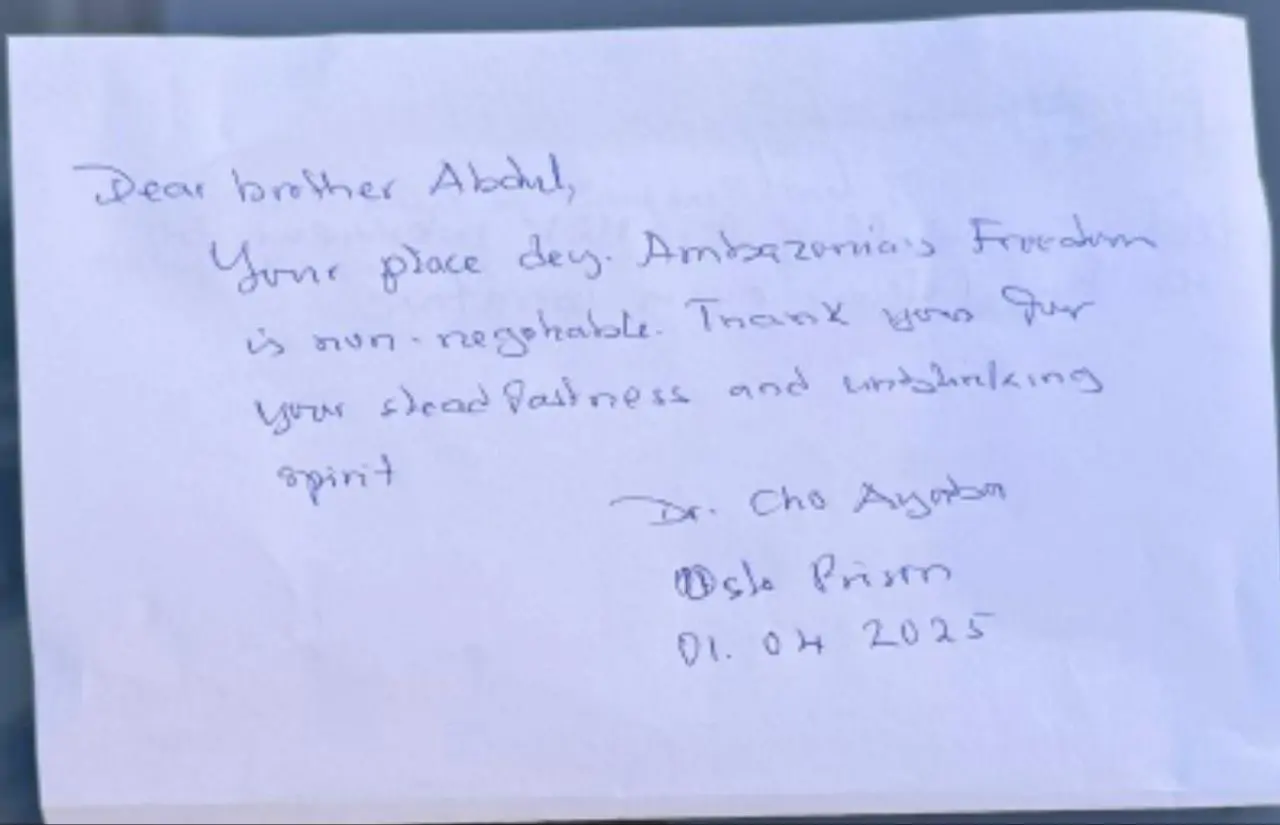 Dear brother Abdul,
Your place dey. Ambazonia's Freedom
is non-negotiable. Thank you for
your steadfastness and unshrinking
spirit
Dr. Cho Ayaba
Oslo Prison
01. 04 2025